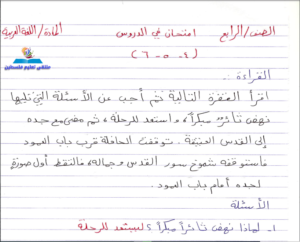 الصف/الرابع امتحان في الدروس المادة/اللغة العربية
(٤ - ٥ - ٦)
ملتقى تعليم فلسطين
القراءة :-
اقرأ الفقرة التالية ثم أجب عن الأسئلة التي تليها
نهض ثائر مبكراً، واستعد للرحلة، ثم مضى مع جده
إلى القدس العتيقة. توقفت الحافلة قرب باب العمود
فاستوقفه شموخ سور القدس وجماله، فالتقط أول صورة
لجده أمام باب العمود.
الأسئلة
١- لماذا نهض ثائر مبكراً؟ ليستعد للرحلة